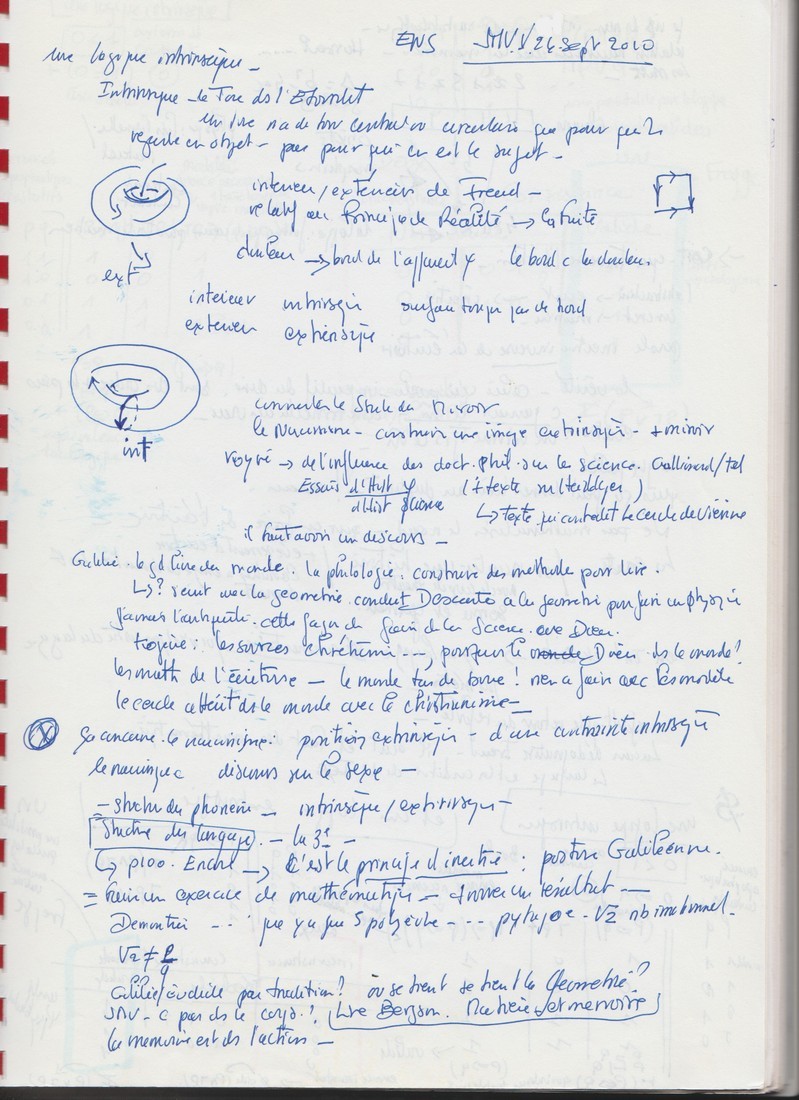 ENS JMV. 26 Sept 2010
une logique intrinsèque _
Intrinseque _ le Tore ds l'Etourdit
un tore n'a de trou central ou circulaire que pour qui l'
regarde en objet _ pas pour qui en est le sujet _
interieur / extérieur de Freud _
relatif au Principe de Réalité → la fuite
ext
douleur → bord de l'appareil ψ le bord c la douleur.
interieur intrinsèq surface torique pas de bord
exterieur extrinsèque
int
le Stade du Miroir
le Narcissisme _ construire une image extrinsèq _ + miroir
→ de l'influence des doct. phil. sur la science. Gallimard/tel
Essais d'Hist φ (+ texte sur Heidegger)
d'Hist
↳ texte qui contredit le cercle de Vienne
il faut avoir un discours _
Galilée . le gd livre du monde . la philologie . construire des methodes pour lire .
↳ ? avec la geometrie conduit Descartes a la geometrie pour faire un physiq
jamais l'antiquité . cette façon de faire de la Science . ave Dieu.
Kojève : les sources chrétiennes ---, pourquoi le Dieu ds le monde ?
les math de l'écriture _ le monde de ! rien a faire avec les modèles
le cercle atterrit ds le monde avec le christianisme _
ça concerne le narcissisme : position extrinsèque _ d'une contrainte intrinsèq
discours sur le sexe _
_ structure du phoneme _ intrinsèque / extrinsèque _
Structure du langage . _ la 3e _
↳ p100 . Encore → c'est le principe d'inertie : posture Galiléenne.
= faire un exercice de mathématique _ trouver un résultat _
Demontrer -- ' que y a que 5 polyèdre _ -- pythagore _ √2 nb irrationnel _
√2 ≠ p/q
Galilée euclide par tradition ? où se tient se tient la Géométrie ?
JMV _ c pas ds le corps ? Lire Bergson . Matière et memoire
la memoire est ds l'action _